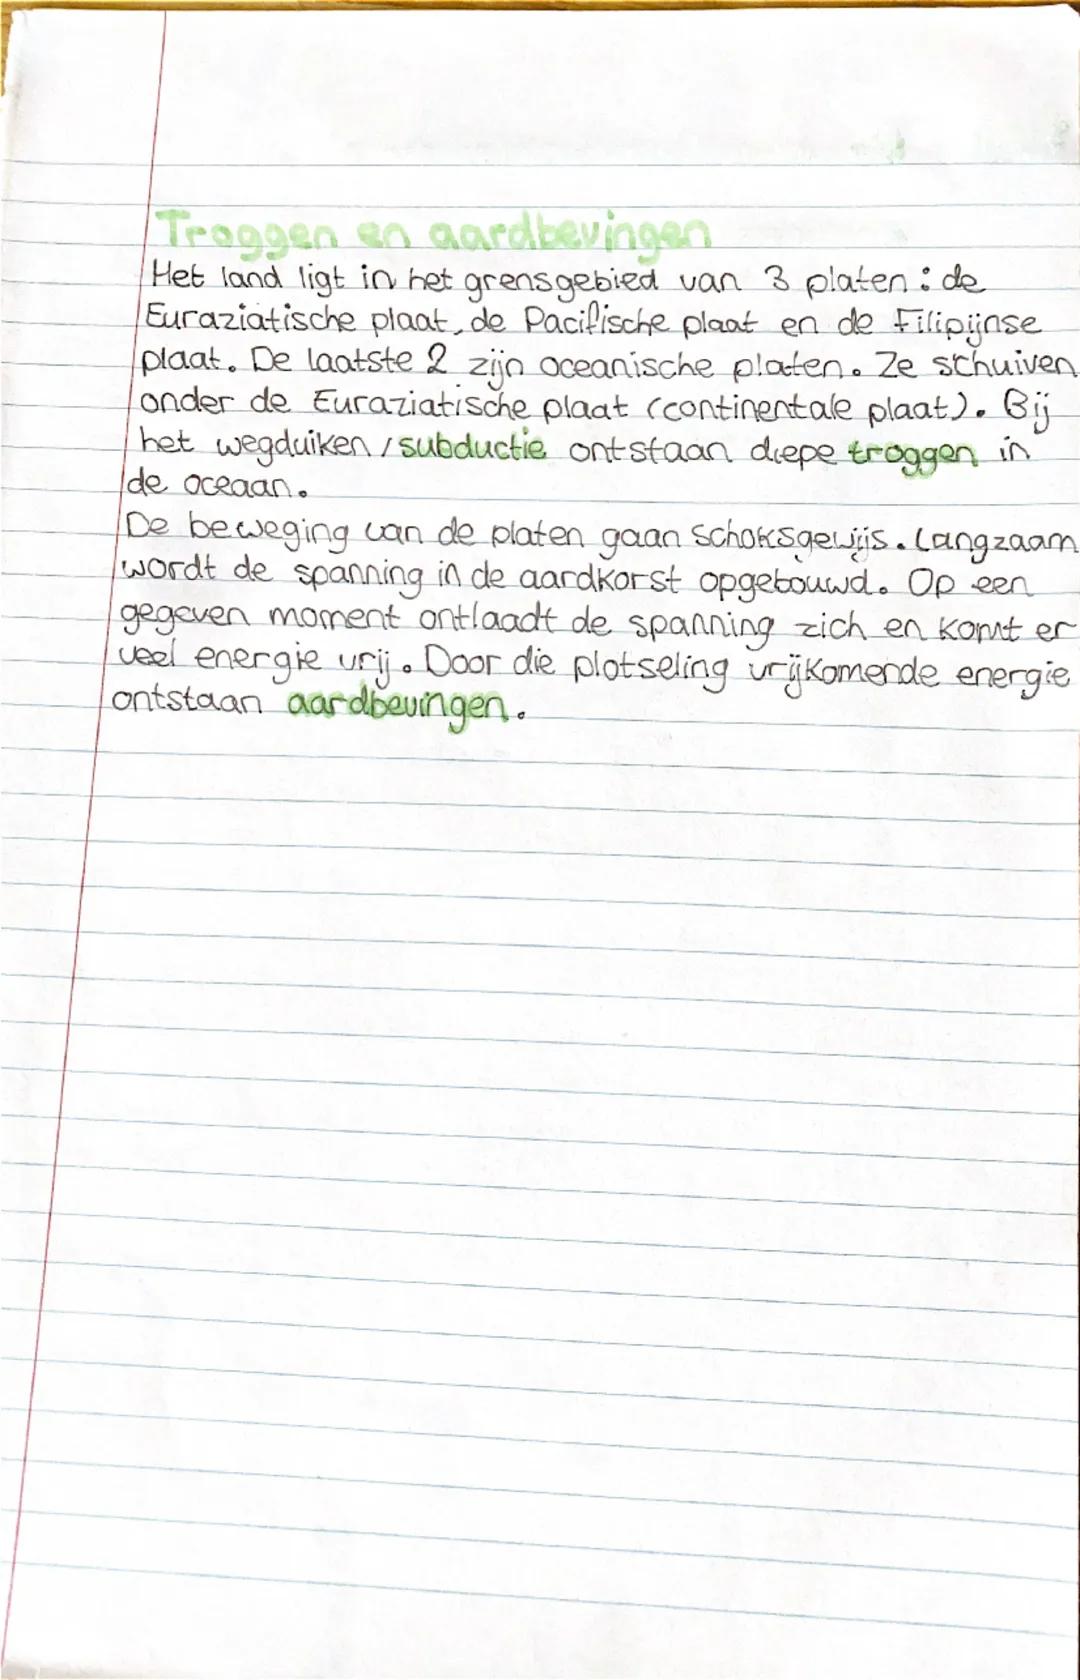 Troggen en aardbevingen
Het land ligt in het grensgebied van 3 platen: de
Euraziatische plaat, de Pacifische plaat en de Filipijnse
plaat. De laatste 2 zijn oceanische platen. Ze schuiven
onder de Euraziatische plaat (continentale plaat). Bij
het wegduiken / subductie ontstaan diepe troggen in
de oceaan.
De beweging van de platen gaan schoksgewijs. Langzaam
wordt de spanning in de aardkorst opgebouwd. Op een
gegeven moment ontlaadt de spanning zich en komt er
veel energie vrij. Door die plotseling vrijkomende energie
ontstaan aardbevingen.